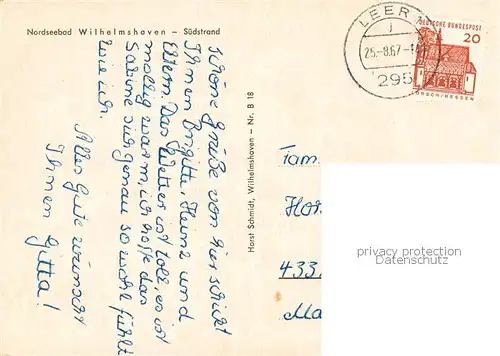 Nordseebad Wilhelmshaven – Südstrand
Schöne Grüße von hier schickt
Ihnen Brigitte, Heinz und
Eltern. Das Wetter ist toll, es ist
mollig warm, ich hoffe das
Sabine sich genau so wohl fühlt
wie ich.
Alles Gute wünscht
Ihnen Gitta!
Horst Schmidt, Wilhelmshaven – Nr. B 18
LEER
25.-8.67
295
DEUTSCHE BUNDESPOST
20
LORSCH/HESSEN
Fam.
Hor
433
Ma
privacy protection
Datenschutz